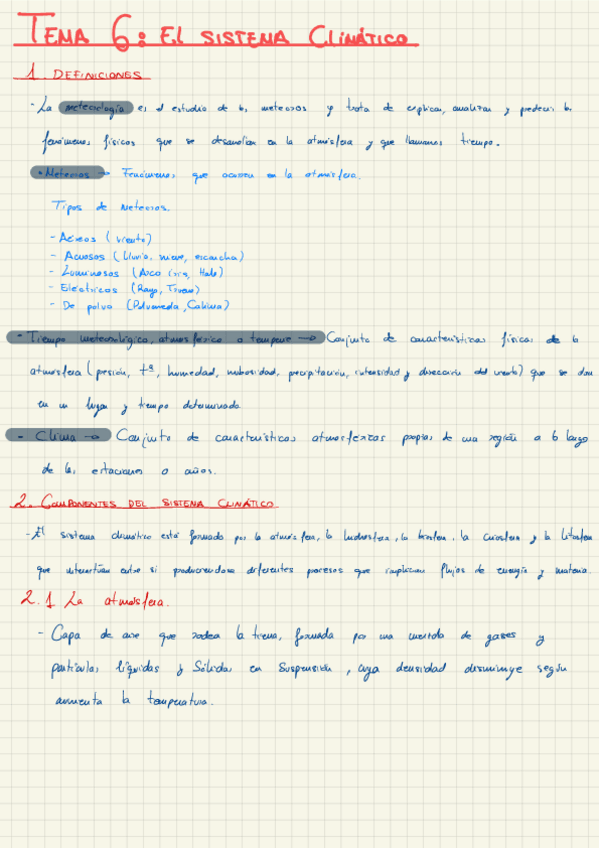 TEMA 6: EL SISTEMA CLIMÁTICO
1. DEFINICIONES
- La meteorología es el estudio de los meteoros y trata de explicar, analizar y predecir los
fenómenos físicos que se desarrollan en la atmósfera y que llamamos tiempo.
• Meteoros → Fenómenos que ocurren en la atmósfera.
Tipos de meteoros.
- Aéreos (viento)
- Acuosos (lluvia, nieve, escarcha)
- Luminosos (Arco iris, Halo)
- Eléctricos (Rayo, Trueno)
- De polvo (Polvareda, Calima)
- Tiempo meteorológico, atmosférico o tempero → Conjunto de características físicas de la
atmósfera (presión, tª, humedad, nubosidad, precipitación, intensidad y dirección del viento) que se dan
en un lugar y tiempo determinado
- Clima → Conjunto de características atmosféricas propias de una región a lo largo
de las estaciones o años.
2. COMPONENTES DEL SISTEMA CLIMÁTICO
- El sistema climático está formado por la atmósfera, la hidrosfera, la biosfera, la criosfera y la litosfera
que interactúan entre si produciendose diferentes procesos que implican flujos de energía y materia.
2.1 La atmósfera.
- Capa de aire que rodea la tierra, formada por una mezcla de gases y
partículas líquidas y Sólidas en suspensión, cuya densidad disminuye según
aumenta la temperatura.